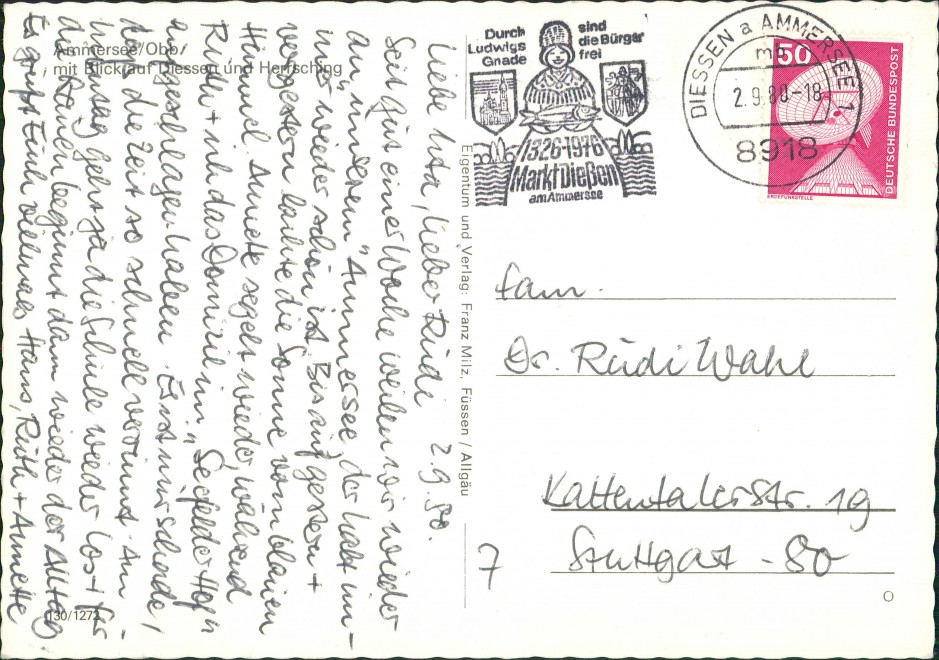 Ammersee/Obb.
mit Blick auf Diessen und Herrsching
Liebe Uta, lieber Rüdi 2.9.80.
Seit gut einer Woche weilen wir wieder
an "unserem" Ammersee, der halt im-
mer wieder schön ist. Bis auf gestern +
vorgestern lachte die Sonne vom blauen
Himmel. Annette segelt wieder, während
Ruth + ich das Domizil im "Seefelder Hof"
aufgeschlagen haben. Es ist nur schade,
daß die Zeit so schnell verrinnt. Am
Montag geht ja die Schule wieder los + für
die Damen beginnt dann wieder der Alltag.
Es grüßt Euch vielmals Hans, Ruth + Annette
130/1272
Eigentum und Verlag: Franz Milz, Füssen / Allgäu
Durch Ludwigs Gnade
sind die Bürger frei
1326-1976
Markt Dießen
am Ammersee
DIESSEN a AMMERSEE 1
mb
2.9.80-18
8918
50
DEUTSCHE BUNDESPOST
ERDEFUNKSTELLE
Fam.
Dr. Rüdi Wahl
Kattentaler Str. 19
7 Stuttgart - 80